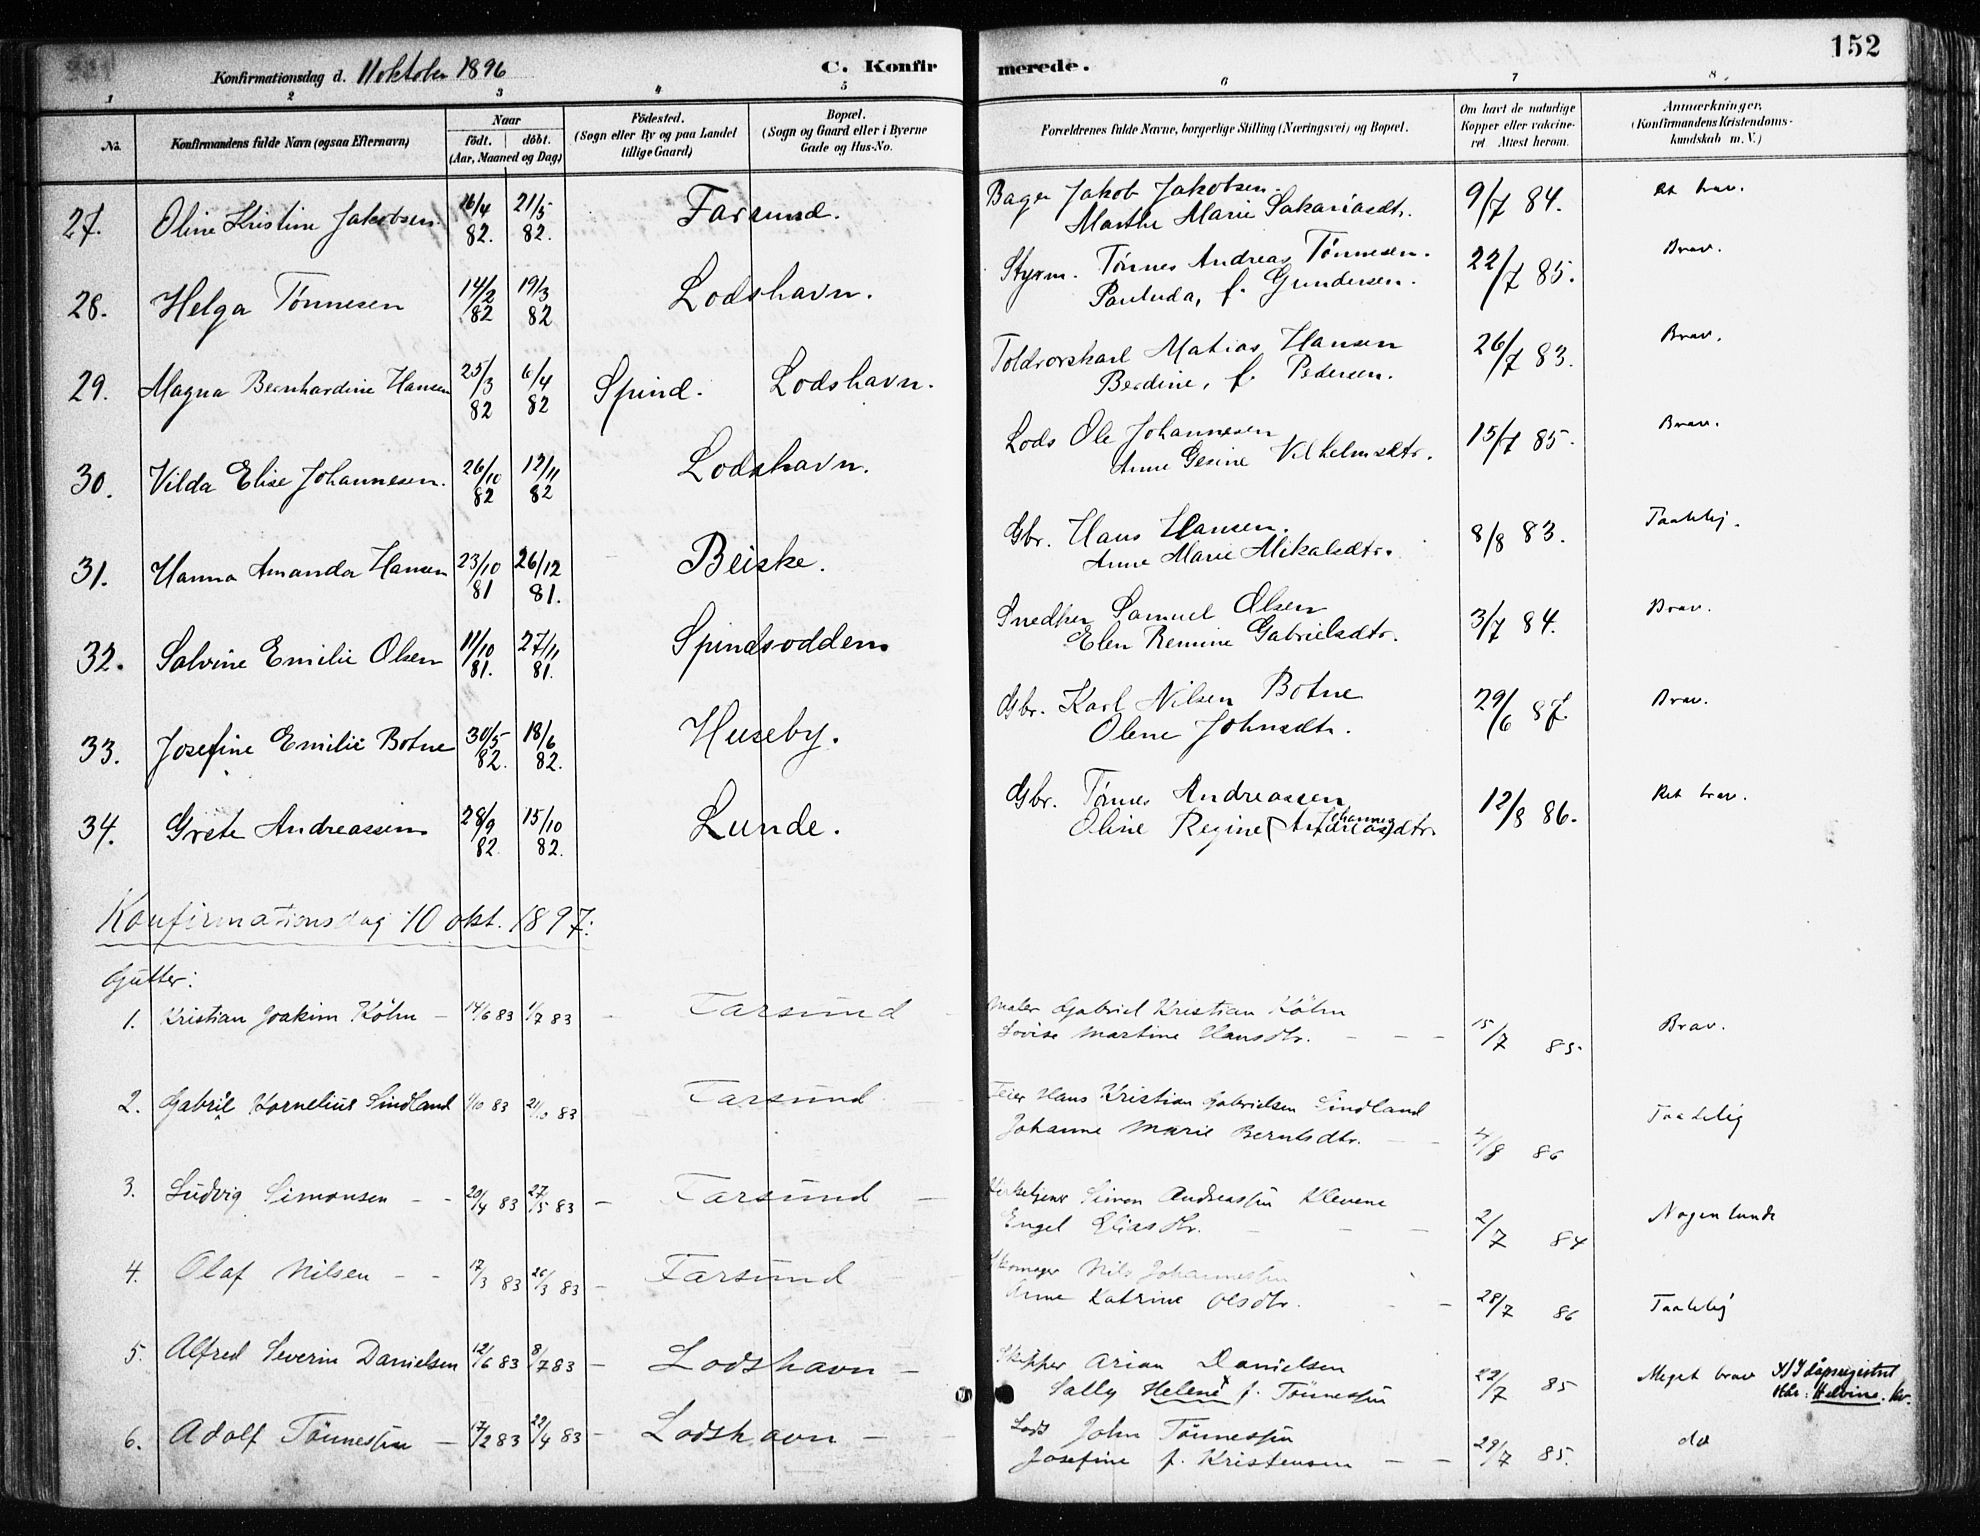 152
Konfirmationsdag d. 11 oktober 1896
C. Konfirmerede.
1 2 3 4 5 6 7 8.
No. Konfirmandens fulde Navn (ogsaa Efternavn) Naar født. døbt. (Aar, Maaned og Dag) Fødested. (Sogn eller By og paa Landet tillige Gaard) Bopæl. (Sogn og Gaard eller i Byerne Gade og Hus-No. Forældrenes fulde Navne, borgerlige Stilling (Næringsvei) og Bopæl. Om havt de naturlige Kopper eller vakcineret Attest herom. Anmærkninger. (Konfirmandens Kristendomskundskab m. V.)
27. Oline Kristine Jakobsen. 26/4 82. 21/5 82. Farsund. Bager Jakob Jakobsen. 9/7 84. Ret brav.
Marthe Marie Sakariasdtr.
28. Helga Tønnesen 14/2 82 19/3 82 Lodshavn. Styrm. Tønnes Andreas Tønnesen. 22/7 85. Brav.
Pauluda, f. Gundersen.
29. Magna Bernhardine Hansen 25/3 82 6/4 82 Spind. Lodshavn. Toldrorskarl Matias Hansen 26/7 83. Brav.
Berdine, f. Pedersen.
30. Vilda Elise Johannesen. 26/10 82 12/11 82 Lodshavn. Lods Ole Johannesen 15/7 85. Brav.
Anne Gesine Vilhelmsdtr.
31. Hanna Amanda Hansen 23/10 81 26/12 81. Beiske. Gbr. Hans Hansen. 8/8 83. Taalelig.
Anne Marie Mikalsdtr.
32. Salvine Emilie Olsen 11/10 81. 27/11 81. Spindsodden. Snedker Samuel Olsen 3/7 84. Brav.
Elen Remine Gabrielsdtr.
33. Josefine Emilie Botne 30/5 82. 18/6 82. Huseby. Gbr. Karl Nilsen Botne 29/6 87. Brav.
Olene Johnsdtr.
34. Grete Andreassen 28/9 82. 15/10 82. Lunde. Gbr. Tønnes Andreassen 12/8 86. Ret brav.
Oline Regine (Andreas) Johannesdtr.
Konfirmationsdag 10 okt. 1897:
Gutter:
1. Kristian Joakim Köhn – 14/6 83 1/7 83 – Farsund – Maler Gabriel Kristian Köhn
Lovise Martine Hansdtr. – – – 15/7 85. Brav.
2. Gabriel Kornelius Sindland 1/10 83 21/10 83 Farsund Feier Hans Kristian Gabrielsen Sindland
Johanne Marie Berntsdtr. – – 4/8 86 Taalelig
3. Ludvig Simonsen – – 20/4 83 27/5 83 – Farsund – Kirketjener Simon Andreassen Klevene
Engel Eliasdtr. – – – 2/7 84 Nogenlunde
4. Olaf Nilsen – – 17/3 83 26/3 83 – Farsund Skomager Nils Johannessen
Anne Katrine Olsdtr. – – 28/7 86 Taalelig
5. Alfred Severin Danielsen 12/6 83 8/7 83 – Lodshavn – Skipper Arian Danielsen
Sally Helene x f. Tønnessen 22/7 85 Meget brav x) I dåpsregistret står: Helvine.
6. Adolf Tønnessen – 17/2 83 22/4 83 – Lodshavn – – Lods John Tønnessen
Josefine f. Kristensen – – 29/7 85. do